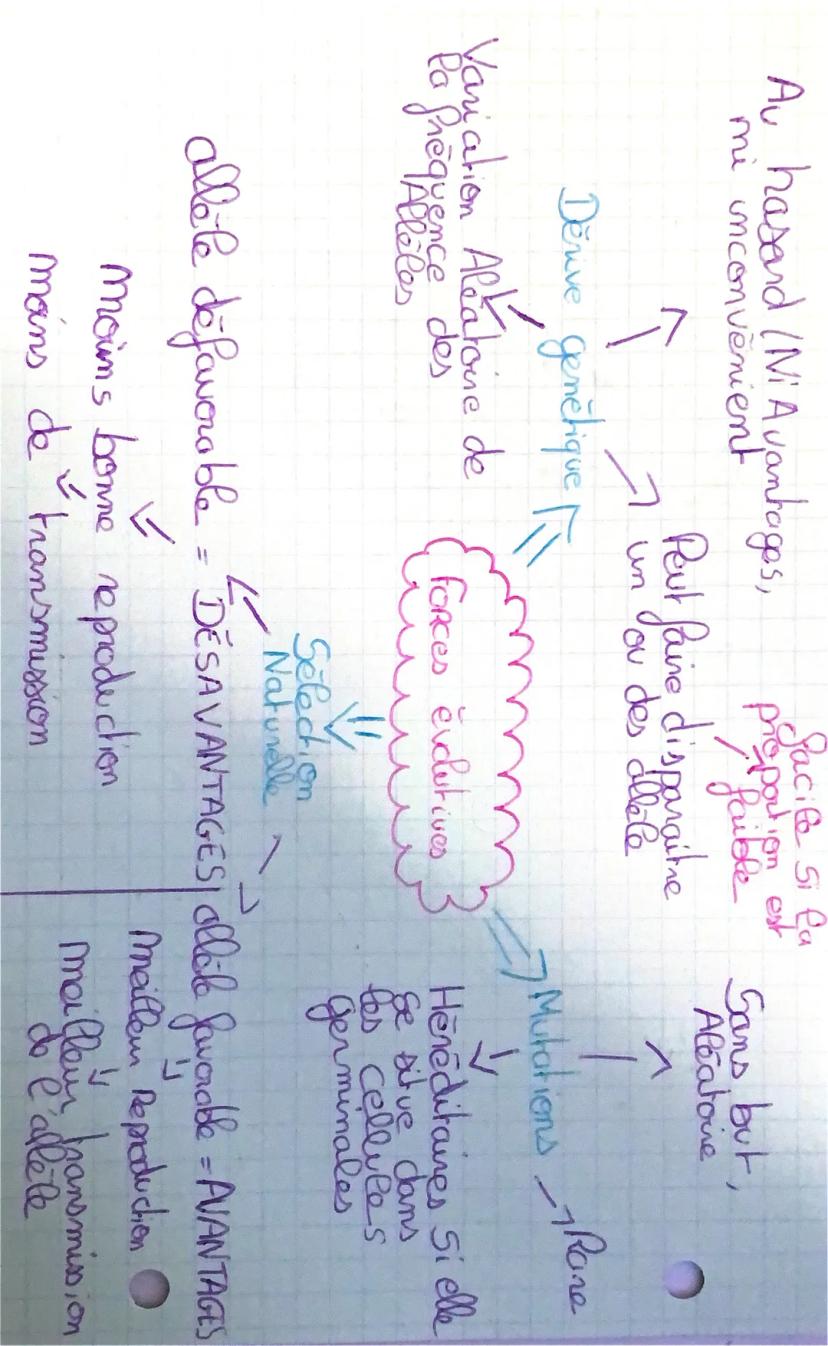 Au hasard (Ni Avantages,
ni inconvénient
facile si la
proportion est
faible
Sans but,
Aléatoire
Peut faire disparaitre
un ou des allèle
Dérive génétique
Mutations
Rare
Variation Aléatoire de
la fréquence des
Allèles
forces évolutives
Héréditaires si elle
se situe dans
les cellules
germinales
Sélection
Naturelle
allèle défavorable = DÉSAVANTAGES
Moins bonne reproduction
Moins de transmission
allèle favorable = AVANTAGES
Meilleur Reproduction
Meilleur transmission
de l'allèle